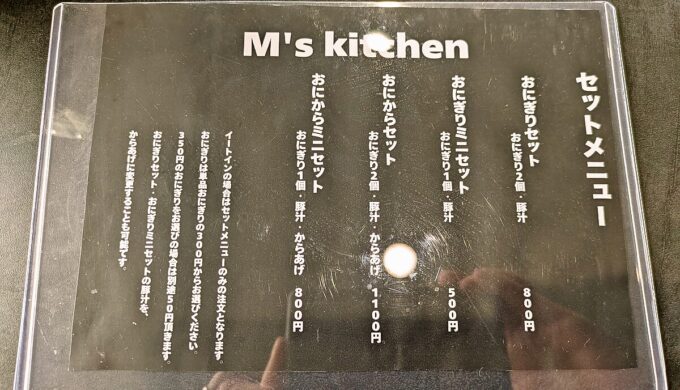 M's kitchen
セットメニュー
おにぎりセット
おにぎり2個・豚汁 800円
おにぎりミニセット
おにぎり1個・豚汁 500円
おにからセット
おにぎり2個・豚汁・からあげ 1100円
おにからミニセット
おにぎり1個・豚汁・からあげ 800円
イートインの場合はセットメニューのみの注文となります。
おにぎりは単品おにぎりの300円からお選びください。
350円のおにぎりをお選びの場合は別途50円頂きます。
おにぎりセット・おにぎりミニセットの豚汁を、
からあげに変更することも可能です。